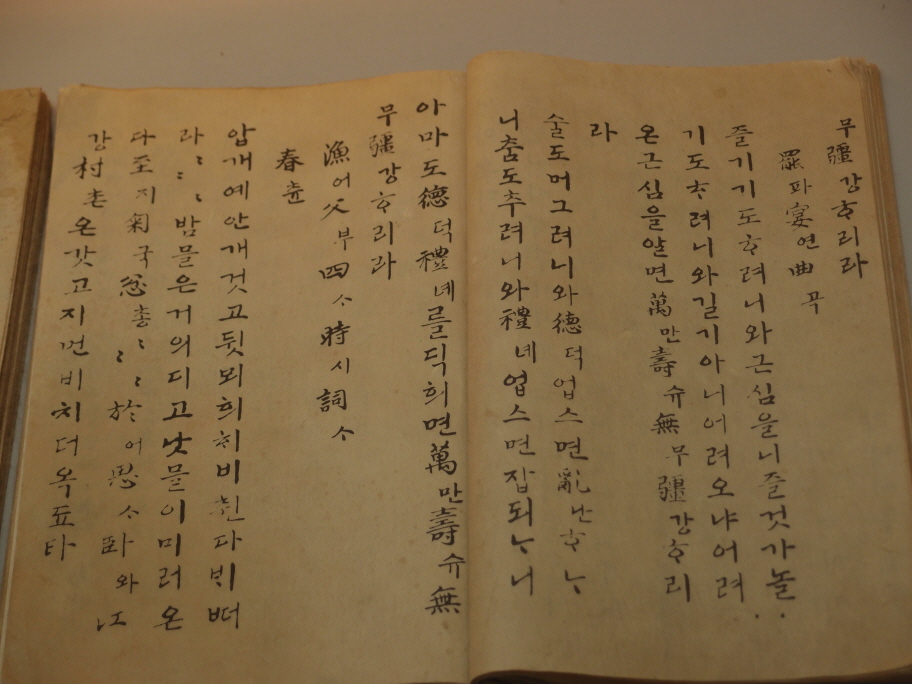 무疆강ᄒᆞ리라
罷파宴연曲곡
즐기기도ᄒᆞ려니와근심을니즐것가놀
기도ᄒᆞ려니와길기아니어려오냐어려
온근심을알면萬만壽슈無무疆강ᄒᆞ리
라
술도머그려니와德덕업스면亂난ᄒᆞᄂᆞ
니춤도추려니와禮녜업스면잡되ᄂᆞ니
아마도德덕禮녜를딕희면萬만壽슈無
무疆강ᄒᆞ리라
漁어父부四ᄉᆞ時시詞ᄉᆞ
春츈
압개예안개것고뒷뫼희ᄒᆡ비췬다ᄇᆡᄠᅥ
라〻〻밤믈은거의디고낟믈이미러온
다至지菊국怱총〻〻於어思ᄉᆞ臥와江
강村촌온갓고지먼비치더옥됴타